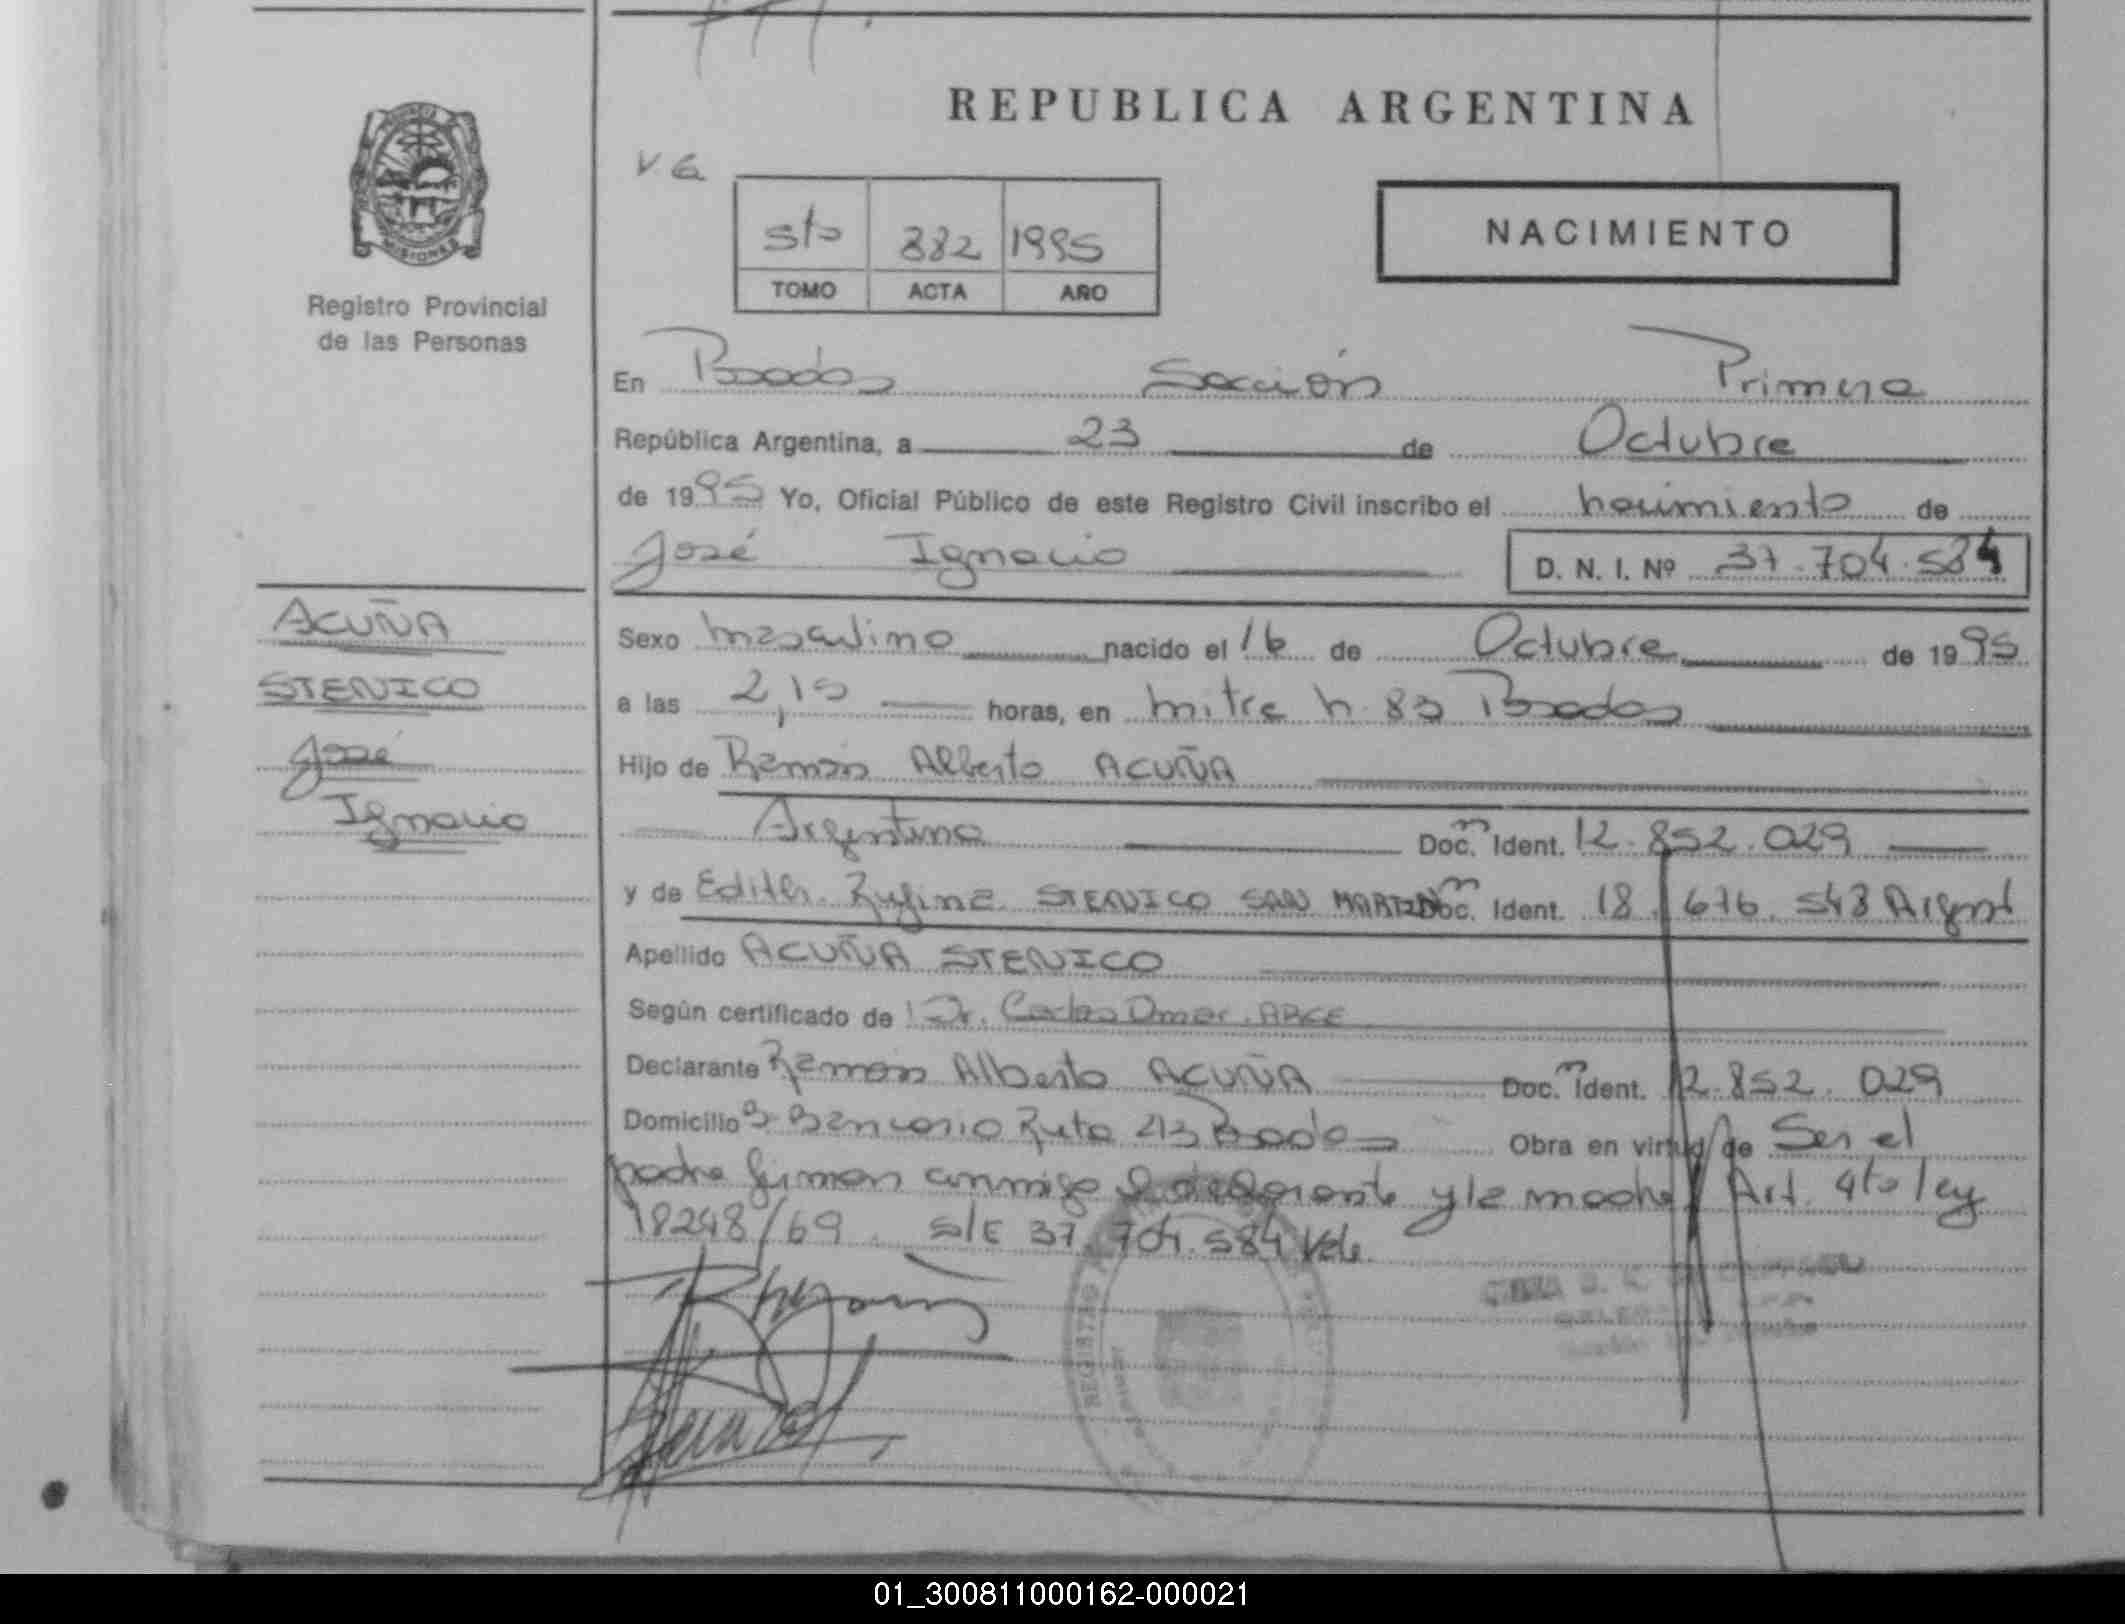 REPUBLICA ARGENTINA
MISIONES
Registro Provincial
de las Personas
V G
5to 382 1995
TOMO ACTA AÑO
NACIMIENTO
En Posadas Sección Primera
República Argentina, a 23 de Octubre
de 1995 Yo, Oficial Público de este Registro Civil inscribo el nacimiento de
José Ignacio D. N. I. Nº 37.704.584
ACUÑA
STENICO
José
Ignacio
Sexo masculino nacido el 16 de Octubre de 1995
a las 2,15 horas, en Mitre n. 83 Posadas
Hijo de Ramón Alberto ACUÑA
Argentina Doc. Ident. 12.852.029
y de Edith Rufina STENICO SAN MARTIN Doc. Ident. 18.676.543 Argent
Apellido ACUÑA STENICO
Según certificado de Dr. Carlos Omar ARCE
Declarante Ramón Alberto ACUÑA Doc. Ident. 12.852.029
Domicilio Bº Bancario Ruta 213 Posadas Obra en virtud de Ser el
padre firman conmigo el declarante y la madre Art. 4to ley
18248/69. s/E 37.704.584 Vale.
REGISTRO
01_300811000162-000021